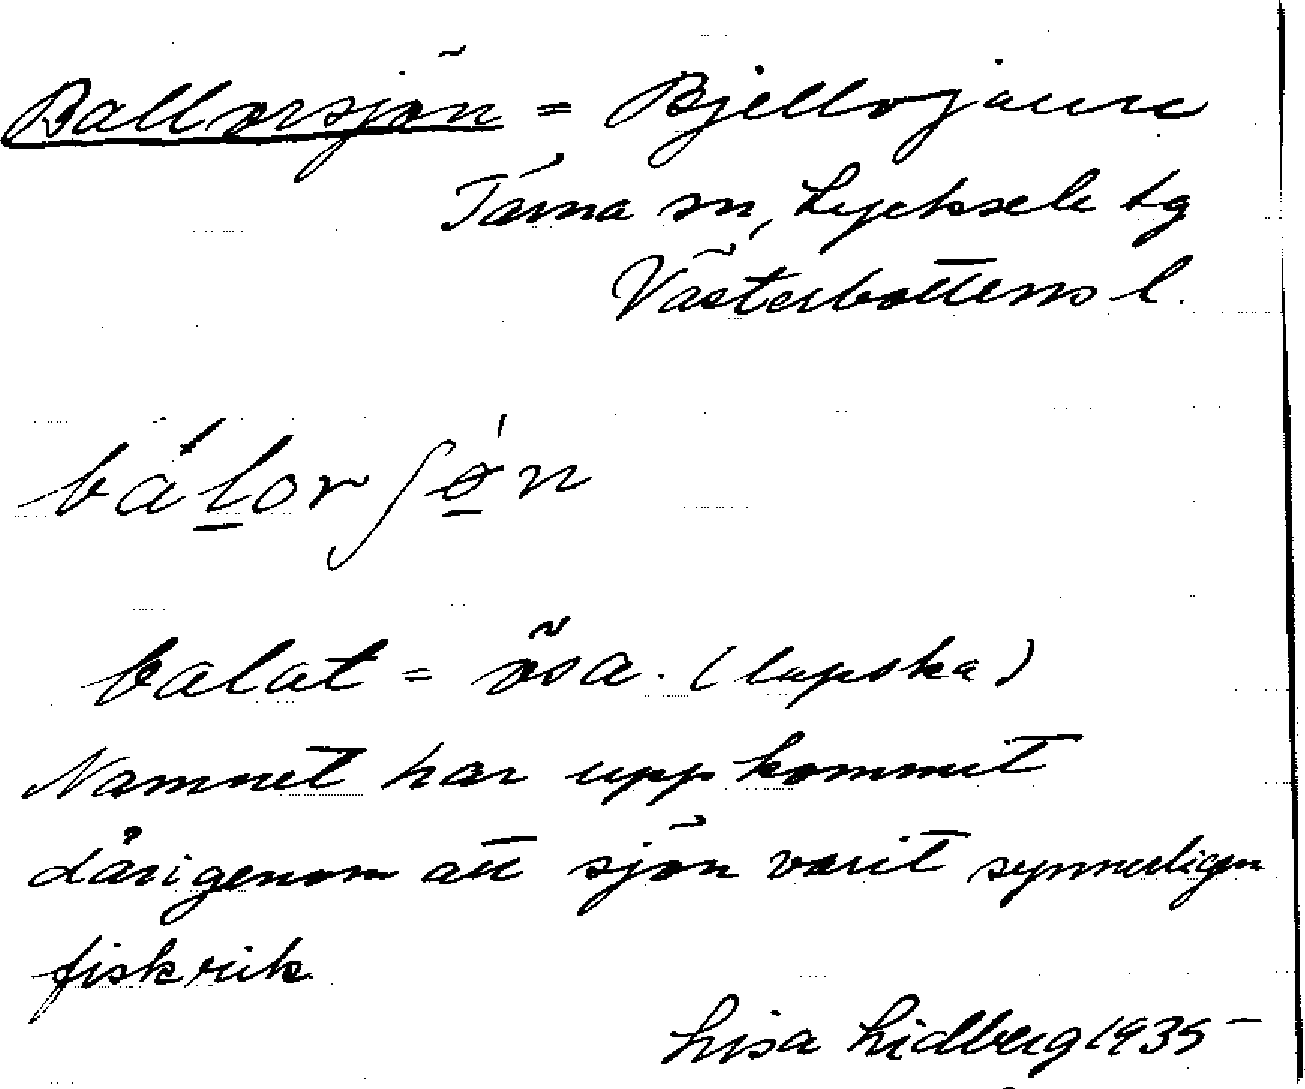 Ballorsjön = Bjellojaure
Tärna sn, Lycksele tg
Västerbottens l.
bálorʃǿn
balat = ösa. (lapska)
Namnet har uppkommit
därigenom att sjön varit synnerligen
fiskrik
Lisa Lidberg 1935